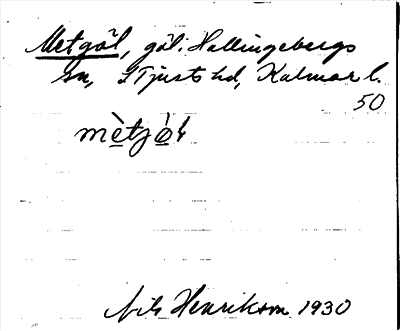 Metgöl, göl: Hallingebergs
sn, STjusts hd, Kalmar l.
50
mètjö̀l
Nils Henrikson 1930